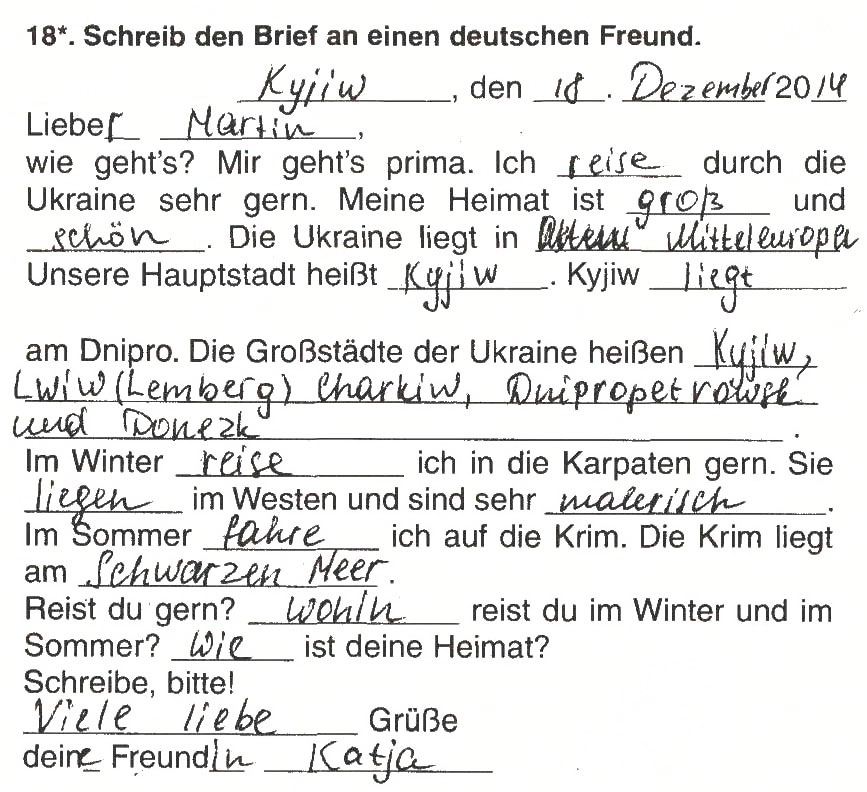 18*. Schreib den Brief an einen deutschen Freund.
Kyjiw, den 18. Dezember 2014
Lieber Martin,
wie geht's? Mir geht's prima. Ich reise durch die
Ukraine sehr gern. Meine Heimat ist groß und
schön. Die Ukraine liegt in Mitteleuropa
Unsere Hauptstadt heißt Kyjiw. Kyjiw liegt
am Dnipro. Die Großstädte der Ukraine heißen Kyjiw,
Lwiw (Lemberg) Charkiw, Dnipropetrowsk
und Donezk.
Im Winter reise ich in die Karpaten gern. Sie
liegen im Westen und sind sehr malerisch.
Im Sommer fahre ich auf die Krim. Die Krim liegt
am Schwarzen Meer.
Reist du gern? Wohin reist du im Winter und im
Sommer? Wie ist deine Heimat?
Schreibe, bitte!
Viele liebe Grüße
deine Freundin Katja